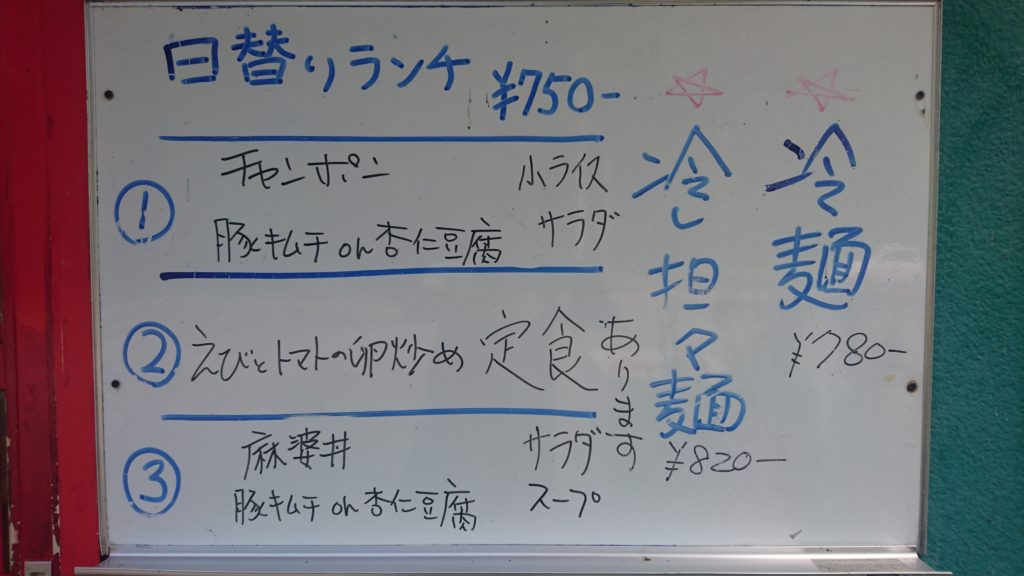 日替りランチ ¥750-
① チャンポン 小ライス
豚キムチ on 杏仁豆腐 サラダ
② えびとトマトの卵炒め 定食
③ 麻婆丼 サラダ
豚キムチ on 杏仁豆腐 スープ
あります
☆冷し担々麺
¥820-
☆冷麺
¥780-